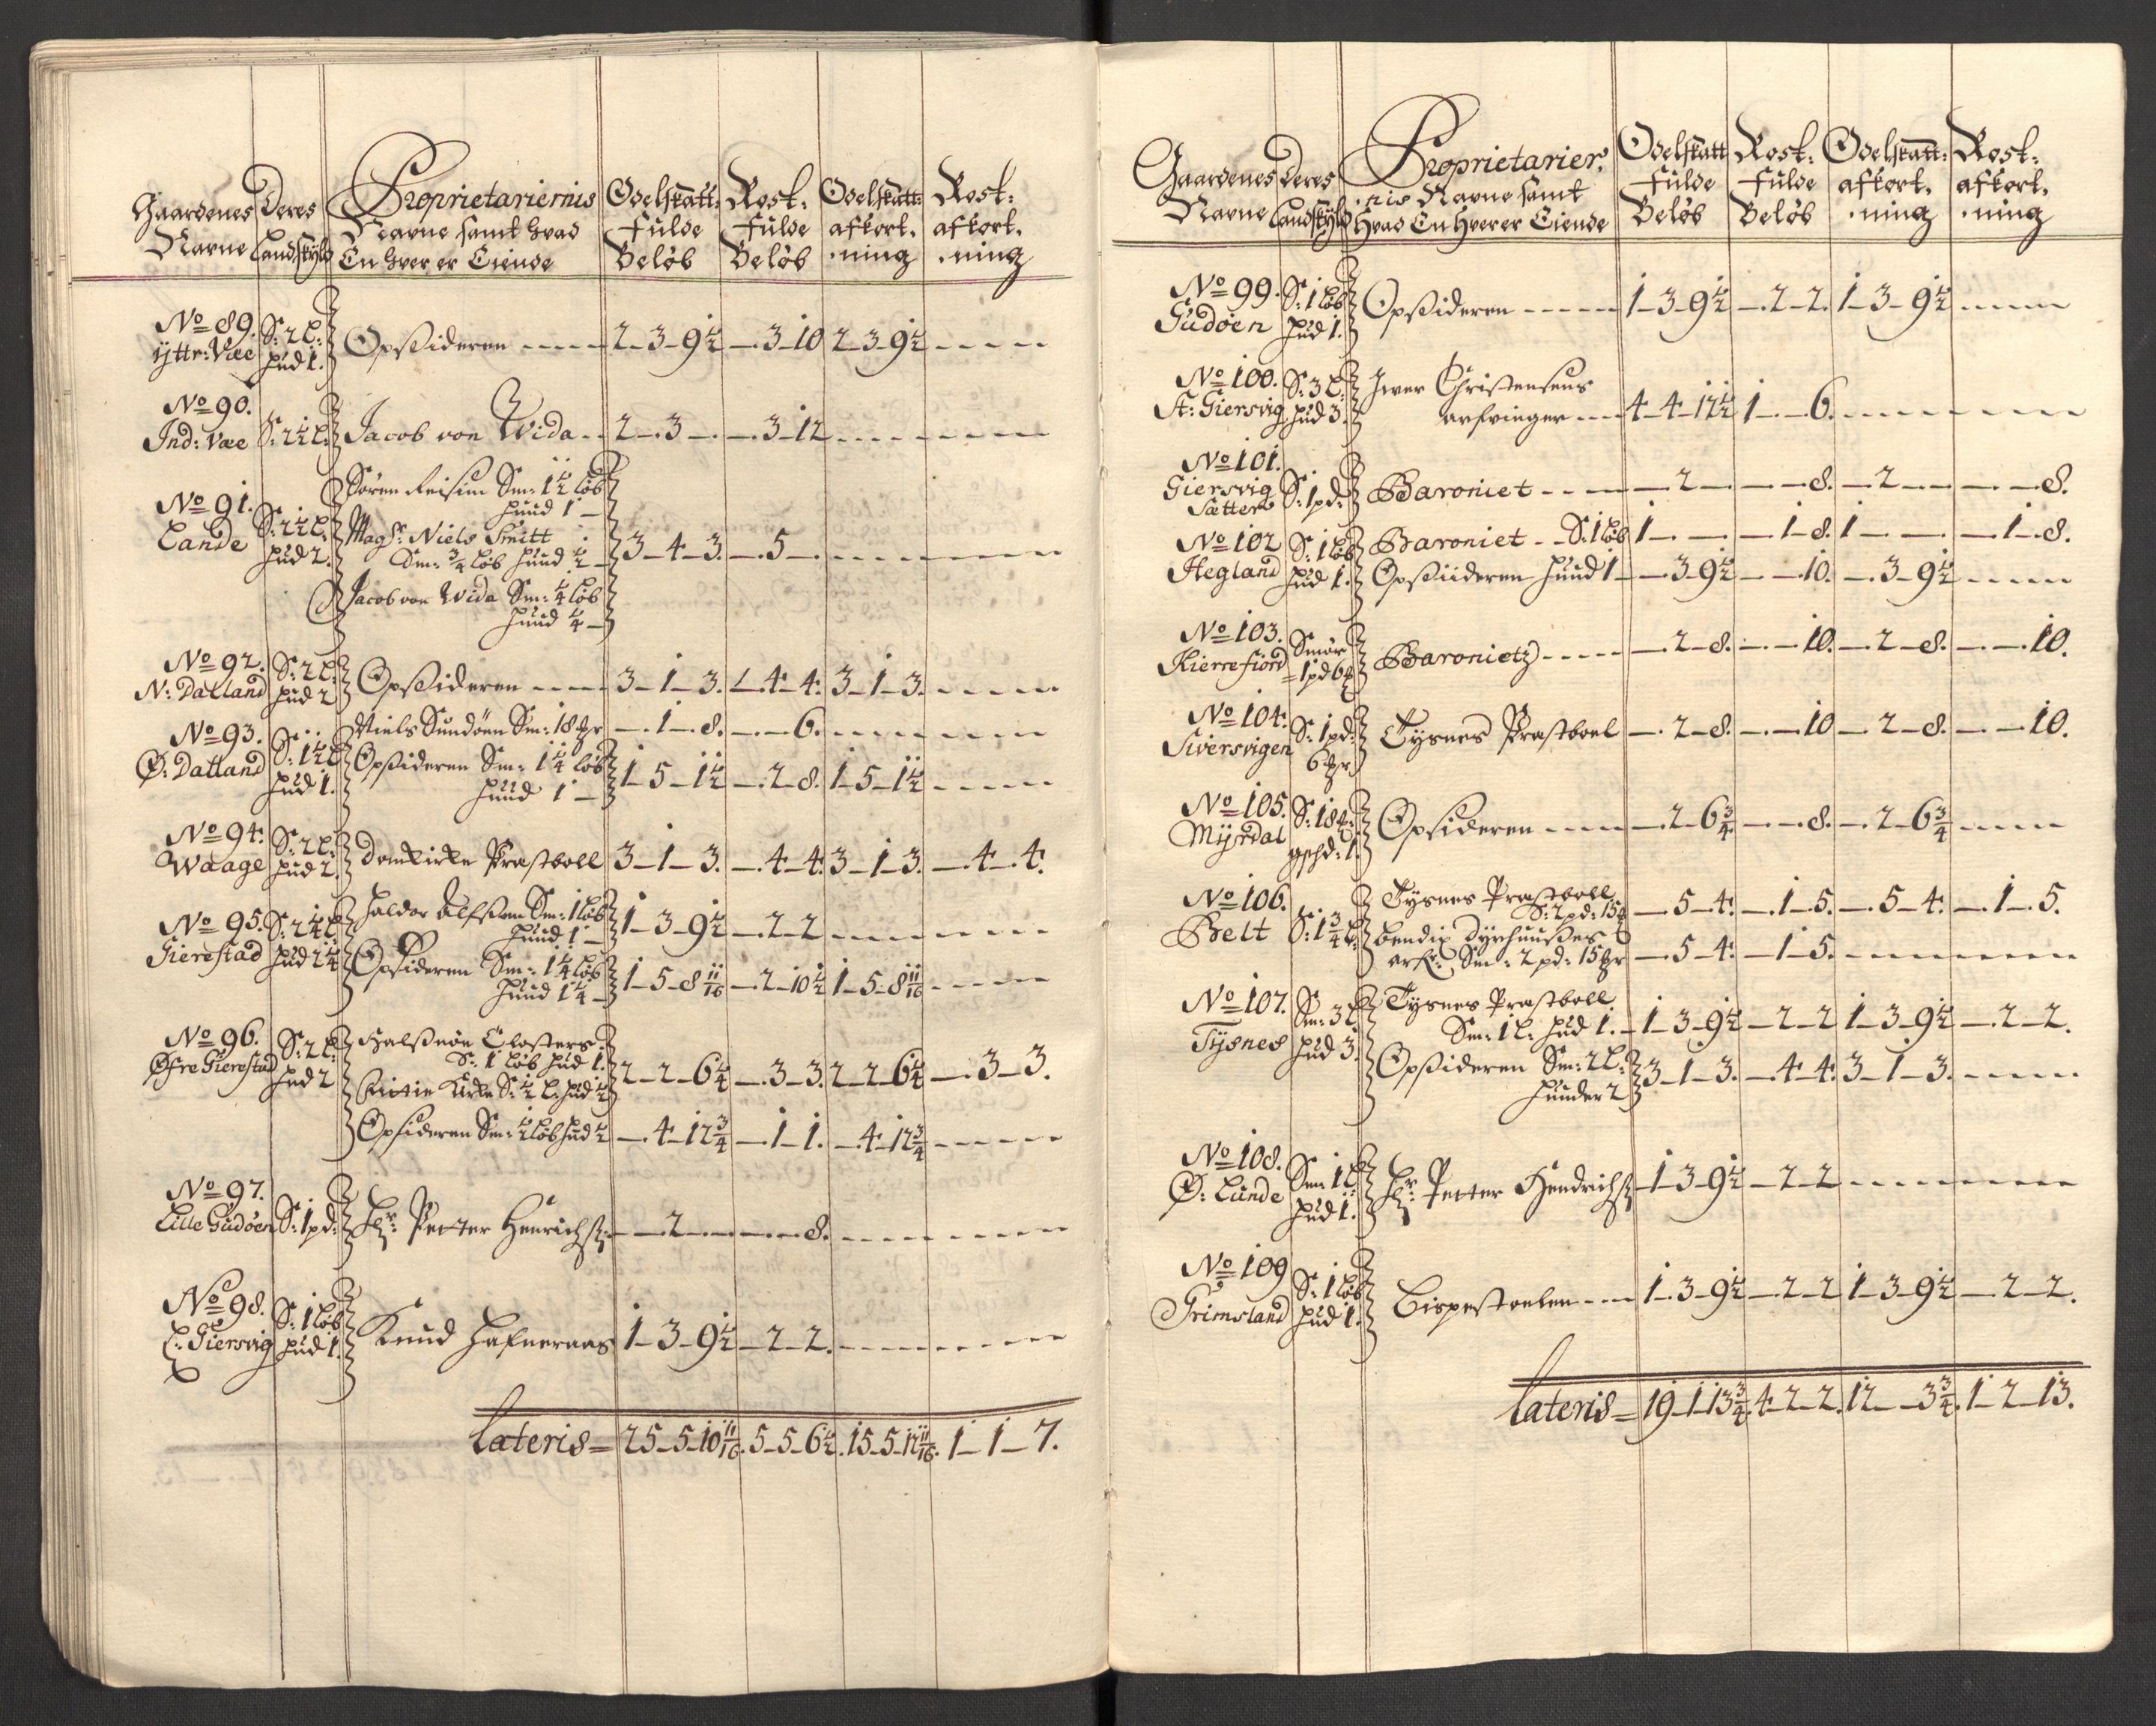 Gaardenes Deres Proprietariernis Odelskatt: Rost: Odelskatt: Rost:
Navne Landskyld Navne samt hvad fulde fulde afkort. afkort.
En hver er Eiende Beløb Beløb ning ning
No 89. S: 2 L: Opsideren 2-3-9½ -3-10 2-3-9½
Yttr: Væe hud 1.
No 90.
Ind: Væe S: 2½ L: Jacob von Wida 2-3- -3-12
Sm: 1½ løb
hund 1
No 91. S: 2½ L: Mags: Niels Smitt 3-4-3. -5-
Lande hud 2. Sm: ¾ løb hund ½
Jacob von Wida Sm: ¼ løb
hund ¼
No 92. S: 2 L: Opsideren 3-1-3. -4-4. 3-1-3.
N: Datland hud 2
No 93. S: 1½ L Niels Sundøen Sm: 18 -1-8. -6.
Ø: Datland hud 1. Opsideren Sm: 1¼ løb 1-5-1½ -2-8. 1-5-1½
hund 1
No 94. S: 2 L: Domkirke Præstboll 3-1-3. -4-4. 3-1-3. -4-4.
Waage hud 2.
No 95. S: 2¼ L Haldor Alfsen Sm: 1 løb 1-3-9½ -2-2
Gierestad hud 2¼ hund 1
Opsideren Sm: 1¼ løb 1-5-8 11/16 -2-10½ 1-5-8 11/16
hund 1¼
No 96. S: 2 L: Halsnøe Closters
Øfre Gierestad hud 2 S: 1 løb hud 1. 2-2-6¼ -3-3. 2-2-6¼ -3-3.
Kirke S: ½ L: hud ½
Opsideren Sm: ½ løb hud ½ -4-12¾ -1-1. -4-12¾
No 97.
Lille Gudøen S: 1 pd: Hr: Petter Henrichs: -2- -8.
No 98. S: 1 løb
L: Giersvig hud 1. Knud Hafneraas 1-3-9½ -2-2.
Lateris = 25-5-10 11/16. 5-5-6½. 15-5-12 11/16. 1-1-7.
Gaardenes Deres Proprietarier. Odelskatt Rost: Odelskatt: Rost:
Navne Landskyld nis Navne samt fulde fulde afkort. afkort.
Hvad En Hver er Eiende Beløb Beløb ning ning
No 99. S: 1 løb Opsideren 1-3-9½ -2-2. 1-3-9½
Gudøen hud 1.
No 100. S: 3 L: Iver Christensens
St: Giersvig hud 3. arfvinger 4-4-12½ 1- -6.
No 101.
Giersvig S: 1 pd: Baroniet -2- -8. -2- -8.
Sætter
No 102 S: 1 løb Baroniet S: 1 løb 1- -1-8. 1- -1-8.
Hegland hud 1. Opsideren hund 1 -3-9½ -10. -3-9½
No 103. Smør Baroniet -2-8. -10. -2-8. -10.
Kierrefiord 1 pd 6
No 104. S: 1 pd: Tysnes Præstboel -2-8. -10 -2-8. -10.
Siversvigen 6
No 105. S: 18 Opsideren -2-6¾ -8. -2-6¾
Myrdal gschd: 1.
No 106. Tysnes Præstboll
Belt S: 1¾ L: S: 2 pd: 15 -5-4. -1-5. -5-4. -1-5.
Bendix Dyrhuusses
arfr: Sm: 2 pd: 15 -5-4. -1-5.
No 107. Sm: 3 L Tysnes Præstboll
Tysnes hud 3. Sm: 1 L: hud 1. 1-3-9½ -2-2 1-3-9½ -2-2.
Opsideren Sm: 2 L: 3-1-3. -4-4. 3-1-3.
hunder 2
No 108. Sm: 1 L Hr: Petter Hendrichs: 1-3-9½ -2-2
Ø: Lunde hud 1.
No 109 S: 1 løb Bispestoelen 1-3-9½ -2-2 1-3-9½ -2-2.
Grimsland hud 1.
Lateris = 19-1-13¾. 4-2-2. 12- -3¾. 1-2-13.